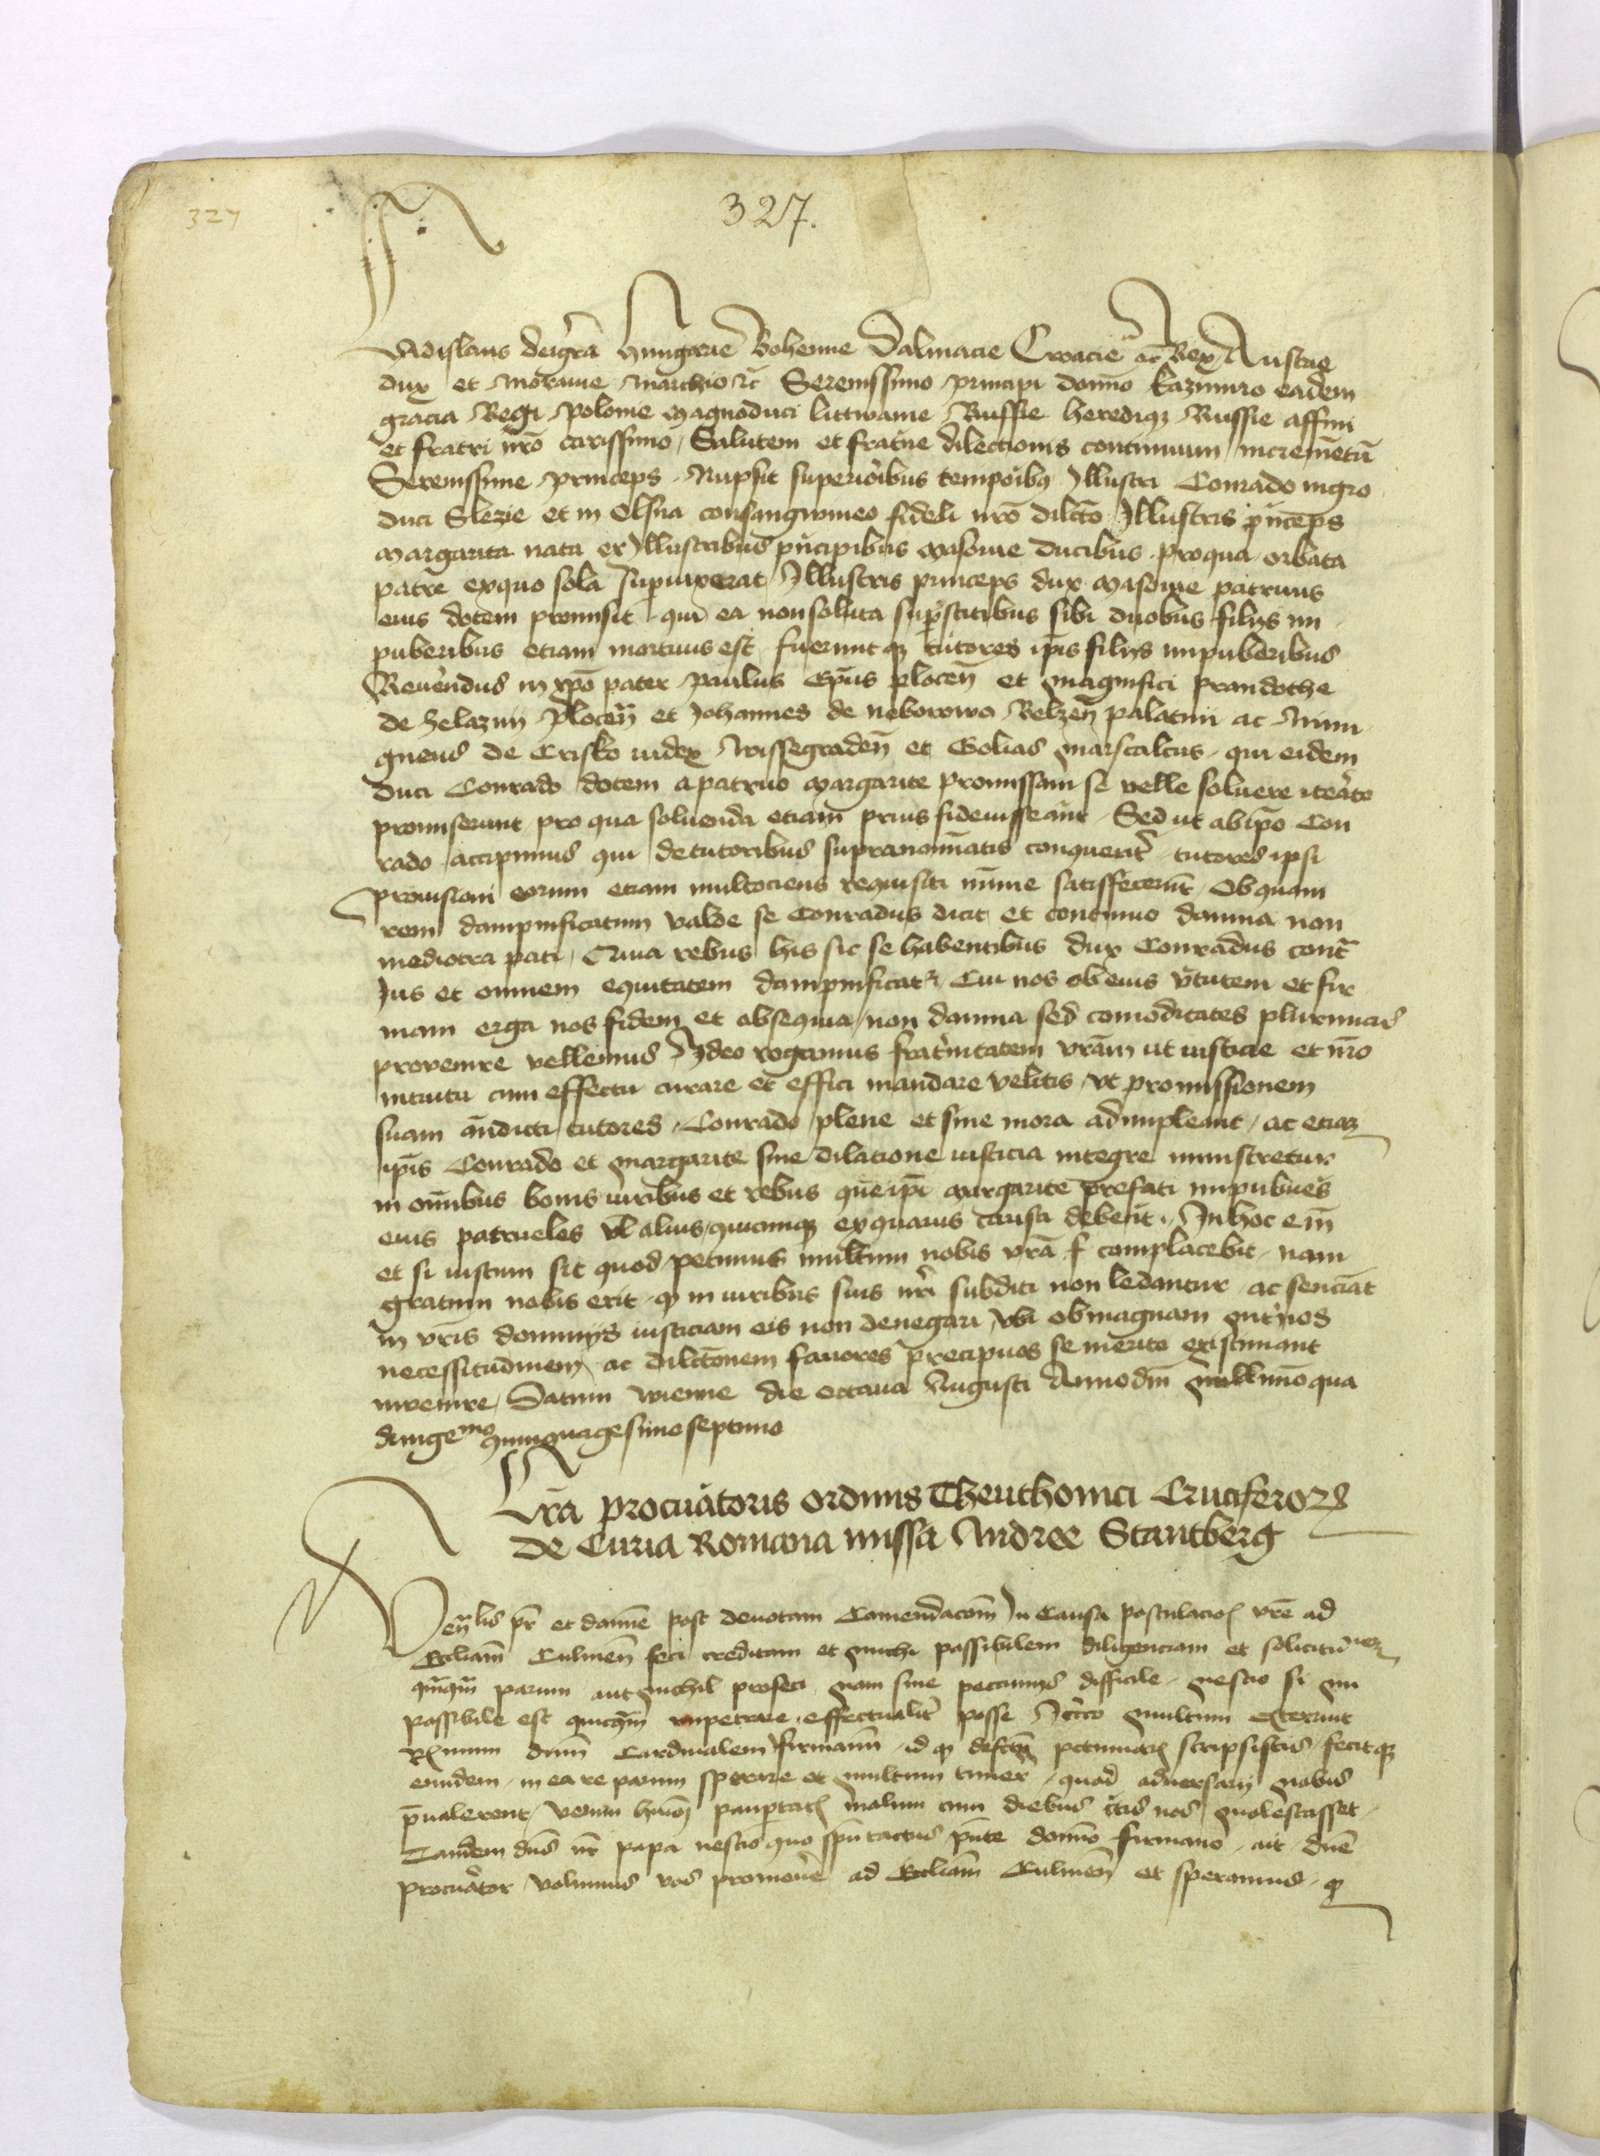 327
327.
Wladislaus deigrã Hungarie Bohemie Dalmacie Croacie zc̃ Rex Austrie
dux et Morauie Marchio zc̃ Serenissimo principi domĩo Kazimiro eadem
gracia Regi Polonie Magnoduci littwanie Russie heredique Russie affini
et fratri nr̃o carissimo Salutem et frat̃ne dilectionis continuum incremẽtũ
Serenissime princeps Nupsit superiõribus tempoĩbȝ Illustri Conrado nigro
duci Slezie et in Olsna consangwineo fideli nr̃o dilc̃to Illustris pñceps
Margarita nata ex Illustribus pñcipibus Masouie ducibus pro qua orbata
patre exquo sola supuixerat Illustris princeps dux Masouie patruus
eius dotem promisit qui ea non soluta sup̃stitibus sibi duobus filijs im
puberibus etiam mortuus est fueruntqȝ tutores ip̃is filijs impuberibus
Reuẽndus in xp̃o pater Paulus Ep̃us plocen̄ et Magnifici prandothe
de zelazuij Plocen̄ et Johannes de neborowo Belzen̄ palatini ac Nimi
gneus de Crisko iudex Wissegraden̄ et Golias Marscalcus qui eidem
duci Conrado dotem a patruo Margarite promissam se velle soluere iteãto
promiserunt pro qua soluenda etiam prius fideiusseãnt Sed ut ab ip̃o Con
rado accipimus qui de tutoribus supranomĩatis conquerit̃ tutores ipsi
promissioni eorum etiam multociens requisiti mĩme satisfecerũt Ob quam
rem dampnificatum valde se Conradus dicit et continuo damna non
mediocra pati Quia rebus his sic se habentibus dux Conradus cont̃
Jus et omnem equitatem dampnificat̃ Cui nos ob eius v̄tutem et fir
mam erga nos fidem et obsequia non damna sed comoditates plurimas
provenire vellemus Ideo rogamus frat̃nitatem vr̃am ut iusticie et nr̃o
intuitu cum effectu curare et effici mandare velitis vt promissionem
suam ãndicti tutores Conrado plene et sine mora adimpleant ac etiaȝ
ip̃is Conrado et Margarite sine dilatione iusticia integre ministretur
in omĩbus bonis iuribus et rebus que ip̃i Margarite prefati impubẽs
eius patrueles vl̃ alius quicunqȝ exquauis causa debent In hoc em̃
et si iustum sit quod petimus multum nobis vr̃a f complacebit nam
gratum nobis erit qȝ in iuribus suis nr̃i subditi non ledantur ac senciãt
in vr̃is dominijs iusticiam eis non denegari vbi ob magnam int̃ nos
necessitudinem ac dilc̃tionem fauores precipuos se merito existimant
invenire Datum wienne die octaua Augusti Anno dñi Millimõ qua
dringemo quinquagesimo septimo
Lr̃a procuãtoris ordinis Theuthonici Cruciferorȝ
de Curia Romana missa Andree Stantberg
Ven̄lis pr̃ et domĩe post deuotam Comendacõm In Causa postulacioȝ vr̃e ad
Eccliam̃ Culmen̄ feci creditam et michi possibilem diligenciam et solicitũiez
qm̃qm̃ parum aut nichil profeci nam sine pecunijs difficile nescio si im
possibile est quicq̃m impetrare effectualit̃ posse Nccito multum exterruit
Rȝimum dnm̃ Cardinalem firmanũ id qȝ defc̃tũ pecuniarȝ scripsistis fecitqȝ
eundem in ea re parum sperare et multum timer̃ quod aduersarij nobis
p̃ualerent venim huiõȝ paup̃tatȝ malum cum diebus c̃tis nos molestasset
Tandem dñs nr̃ papa nescio quo spũ tactus pñte domĩo firmano ait dñe
procuãtor volumus vos promouẽ ad Eccliam̃ Culmen̄ et speramus qȝ